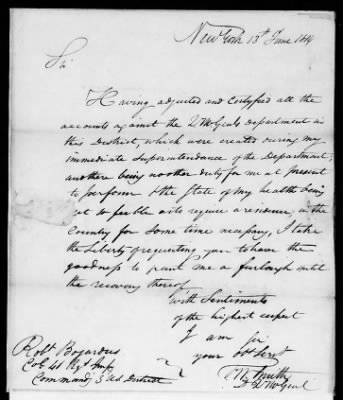 New York 13th June 1814
Sir
Having adjusted and certifyed all the
accounts against the QrMrGenls Department in
this District, which were created during my
immediate Superintendance of the Department,
and there being no other duty for me at present
to perform & the State of my health being
so feeble as to require a residence, in the
Country for some time necessary, I take
the Liberty of requesting you to have the
goodness to grant me a furlough until
the recovery thereof
with Sentiments
of the highest respect
I am Sir
your Obt Servt
Smith
D QrMrGenl
Robt Bogardus
Col 41 Regt Infy
Commandg 3d Md District